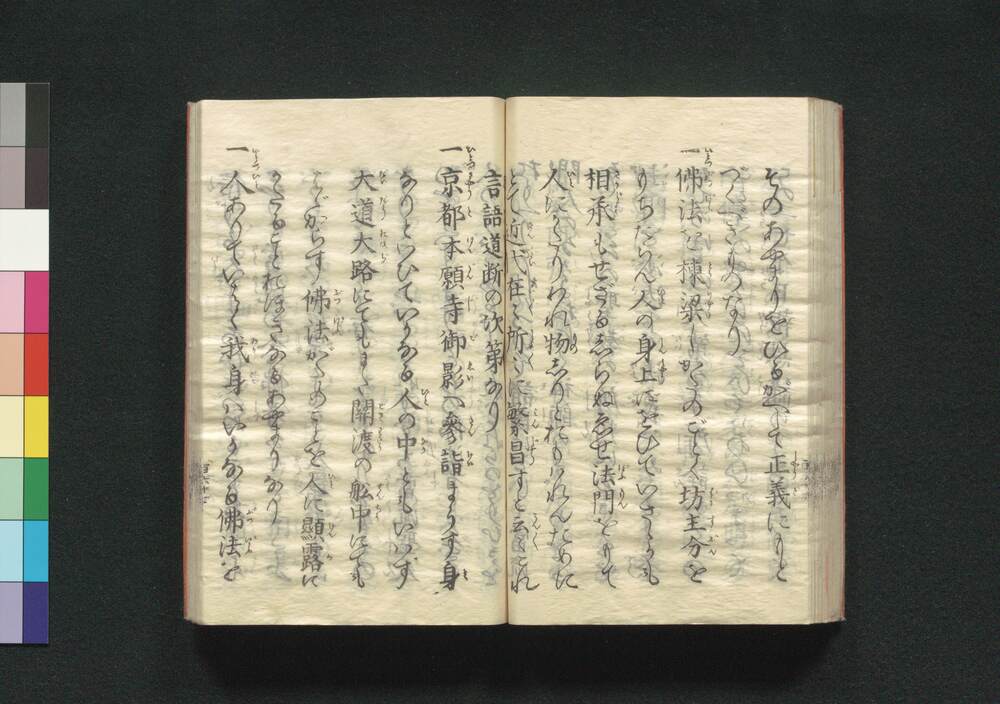 そのあやまりをひるかへして正義にもと
つくべきものなり
一佛法を棟梁しかたのごとく坊主分を
もちたらん人の身上にをひていさゝかも
相承もせざるしらぬゑせ法門をもて
人にかたりわれ物しりとおもはれんために
とて近代在々所々に繁昌すと云々これ
言語道断の次第なり
一京都本願寺御影へ參詣まうす身
なりといひていかなる人の中ともいはず
大道大路にてもまた關渡の舩中にても
はゞからす佛法かたのことを人に顯露に
かたることおほきなるあやまりなり
一人ありていはく我身はいかなる佛法を